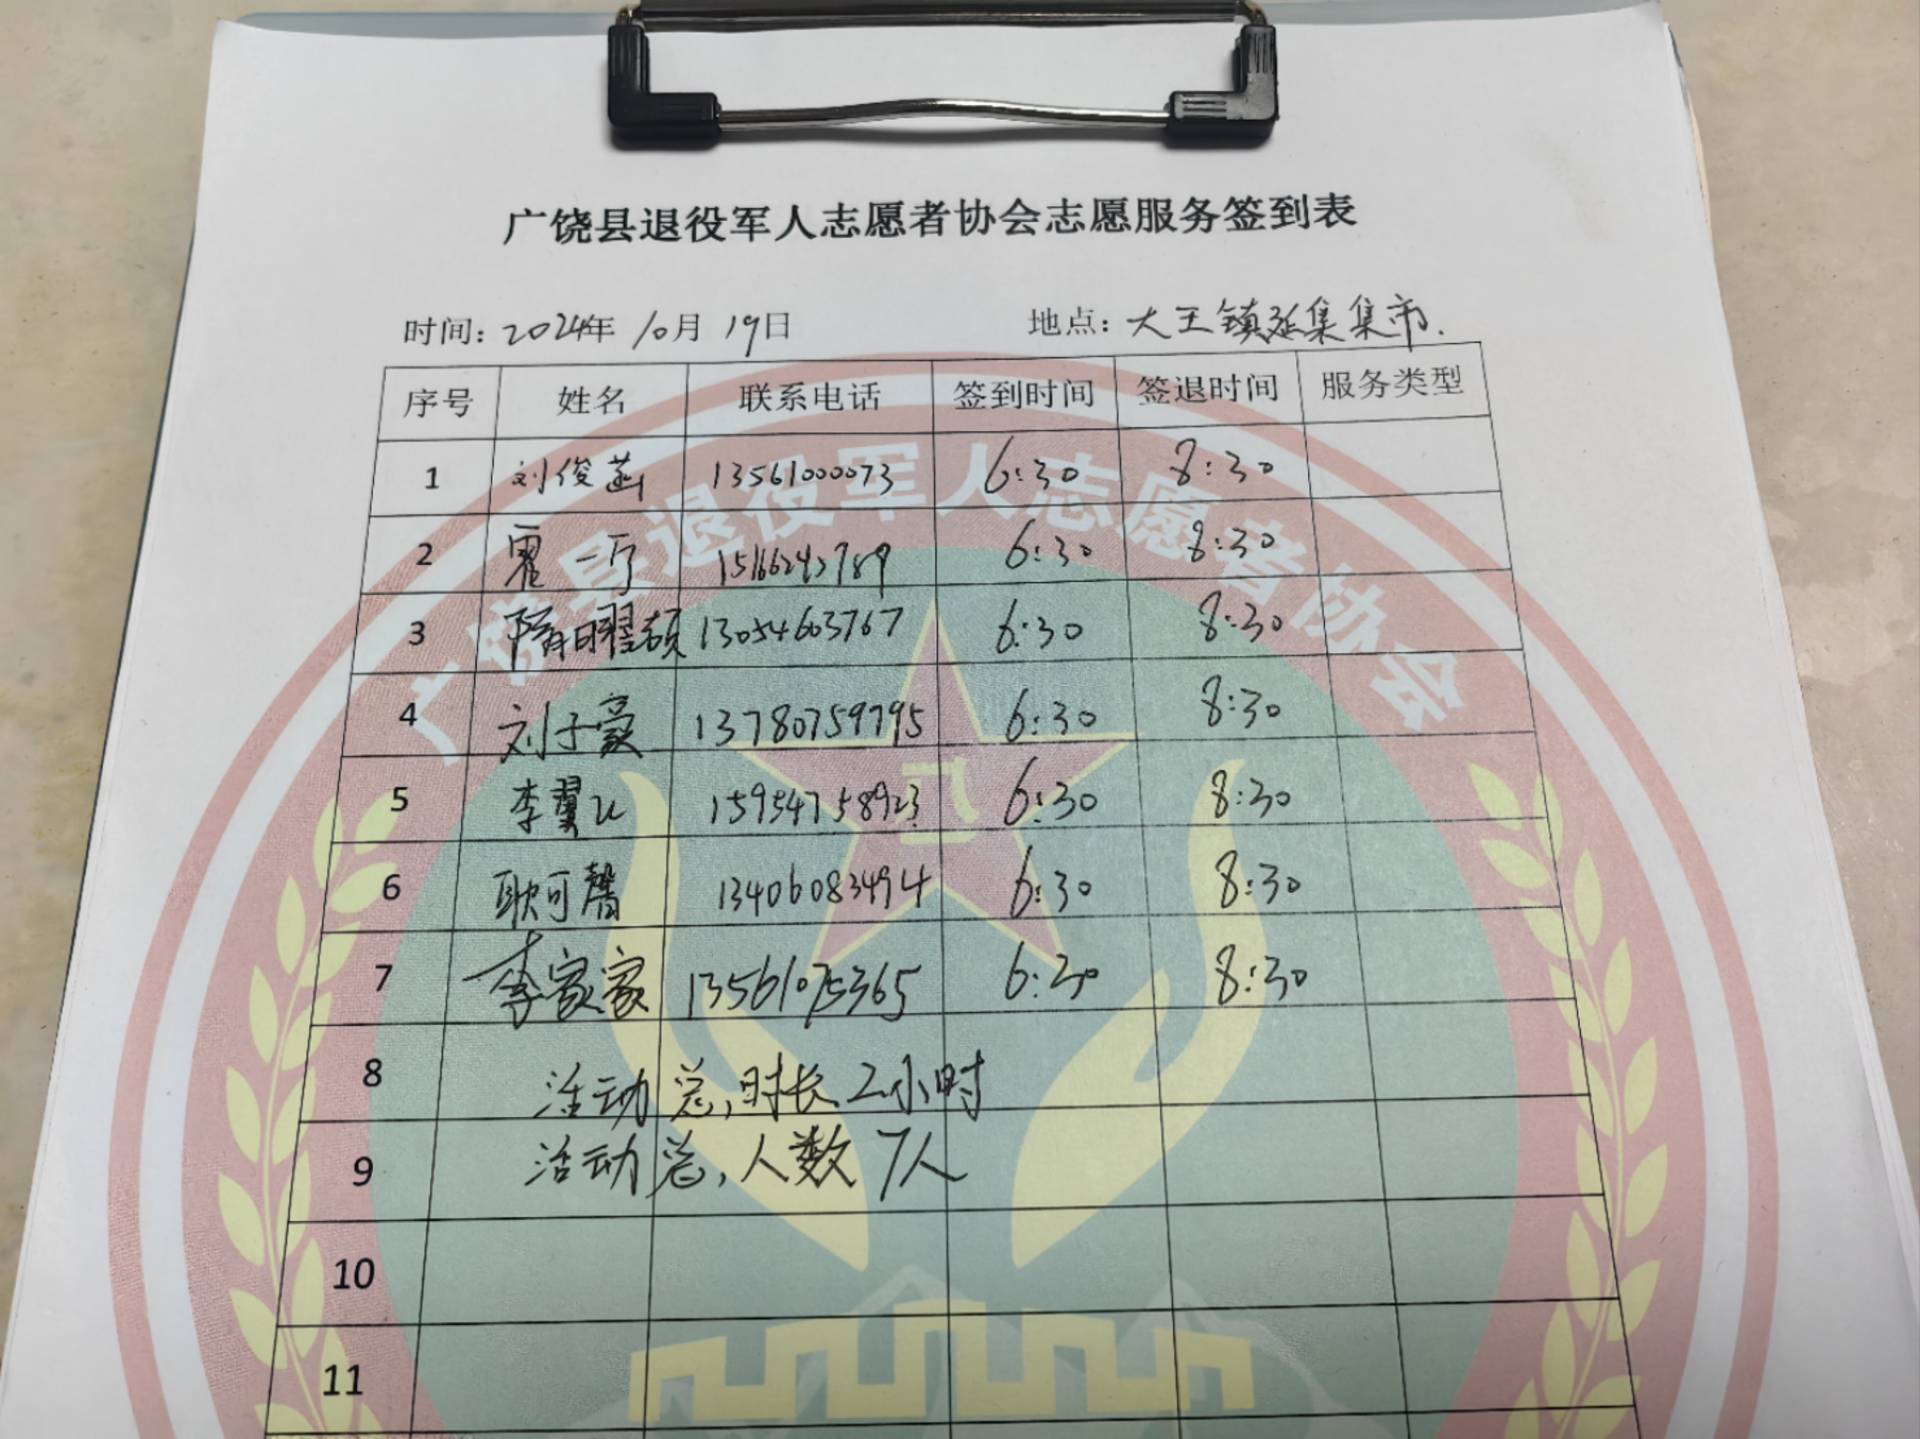 广饶县退役军人志愿者协会志愿服务签到表
时间: 2024年 10月 19日 地点: 大王镇延集集市.
序号 姓名 联系电话 签到时间 签退时间 服务类型
1 刘俊菡 13561000073 6:30 8:30
2 霍一 15166242789 6:30 8:30
3 隋曜硕 13054603767 6:30 8:30
4 刘子豪 13780759795 6:30 8:30
5 李翼 15954758923 6:30 8:30
6 耿可馨 13406083494 6:30 8:30
7 李家家 13561075365 6:30 8:30
8 活动总,时长2小时
9 活动总,人数7人
10
11
广饶县退役军人志愿者协会
八一